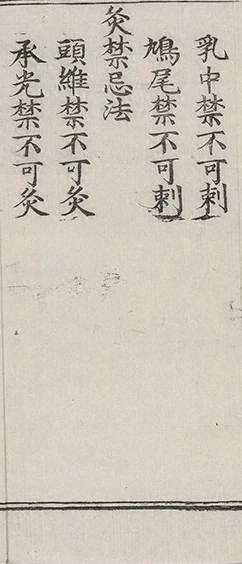 乳中禁不可刺
鳩尾禁不可刺
灸禁忌法
頭維禁不可灸
承光禁不可灸